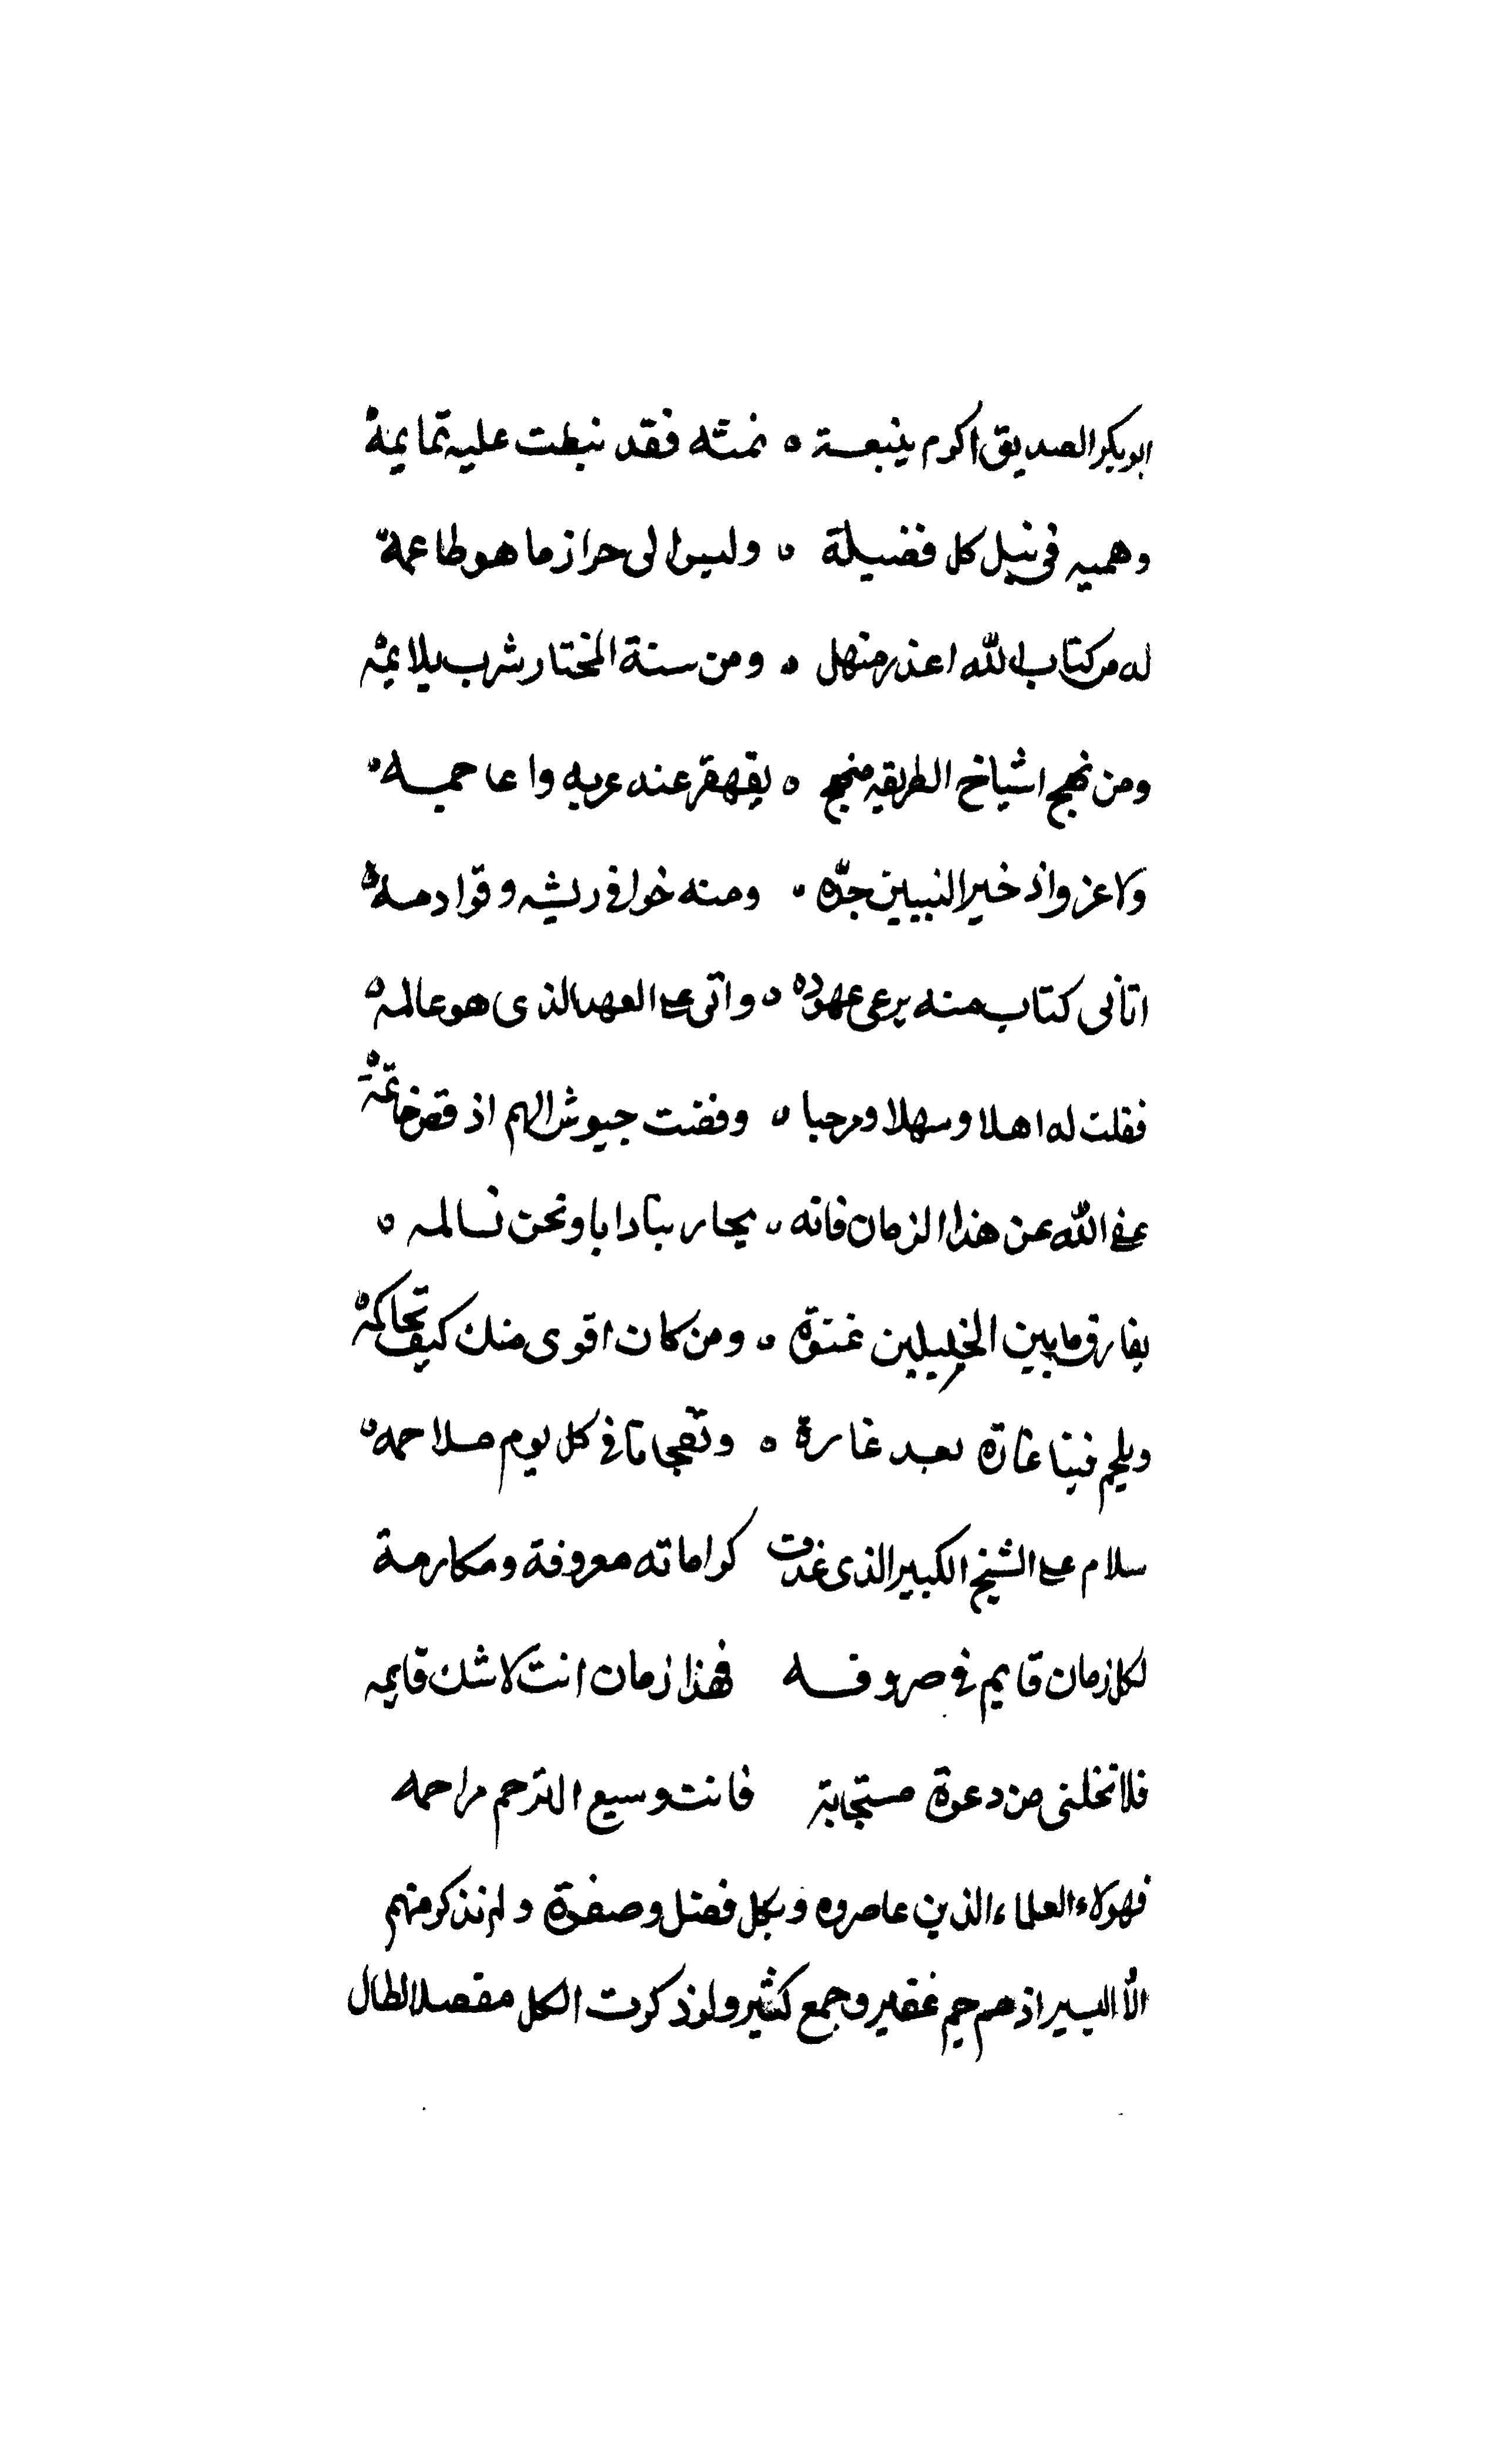 ابوبكر الصديق اكرم بنبعة ه نمته فقد نيطت عليه تمايمه
وهميه في نيل كل فضيلة ه وليس الى حراز ما هو طاعمة
له من كتاب الله اعذب منهل ه ومن سنة المختار شرب يلايمه
ومن نهج اشياخ الطريقه منهج ه يقهقر عنه عربه واعاجمه
ولا غرو اذ خير النبيين جده ه ومنه خوافي ريشه وقوادمه
اتاني كتاب منه يرعى عهوده ه واني على العهد الذي هو عالمه
فقلت له اهلا وسهلا ومرحبا ه وفضت جيوش الهم اذ فض خاتمه
عفى الله عن هذا الزمان فانه ه يحاربنا دابا ونحن نسالمه ه
يفارق ما بين الخليلين عنوة ه ومن كان اقوى منك كيف تحاكمه
ويلحم فينا غارة بعد غارة ه وتفجانا في كل يوم ملاحمه
سلام على الشيخ الكبير الذي غدت كراماته معروفة ومكارمة
لكل زمان قايم في صروفه فهذا زمان انت لاشك قايمه
فلا تخلني من دعوة مستجابة فانت وسيع الترحم مراحمه
فهولاء العلماء الذين عاصروه وبكل فضل وصفوة ولم نذكر منهم
الا اليسير اذ هم جم غفير وجمع كثير ولو ذكرت الكل مفصلا لطال